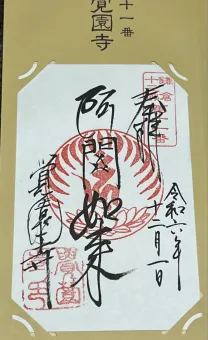 十一番
覚園寺
奉拝
鎌倉
十
番
阿閦如来
令和六年
十二月一日
覚園寺
覺園
寺印